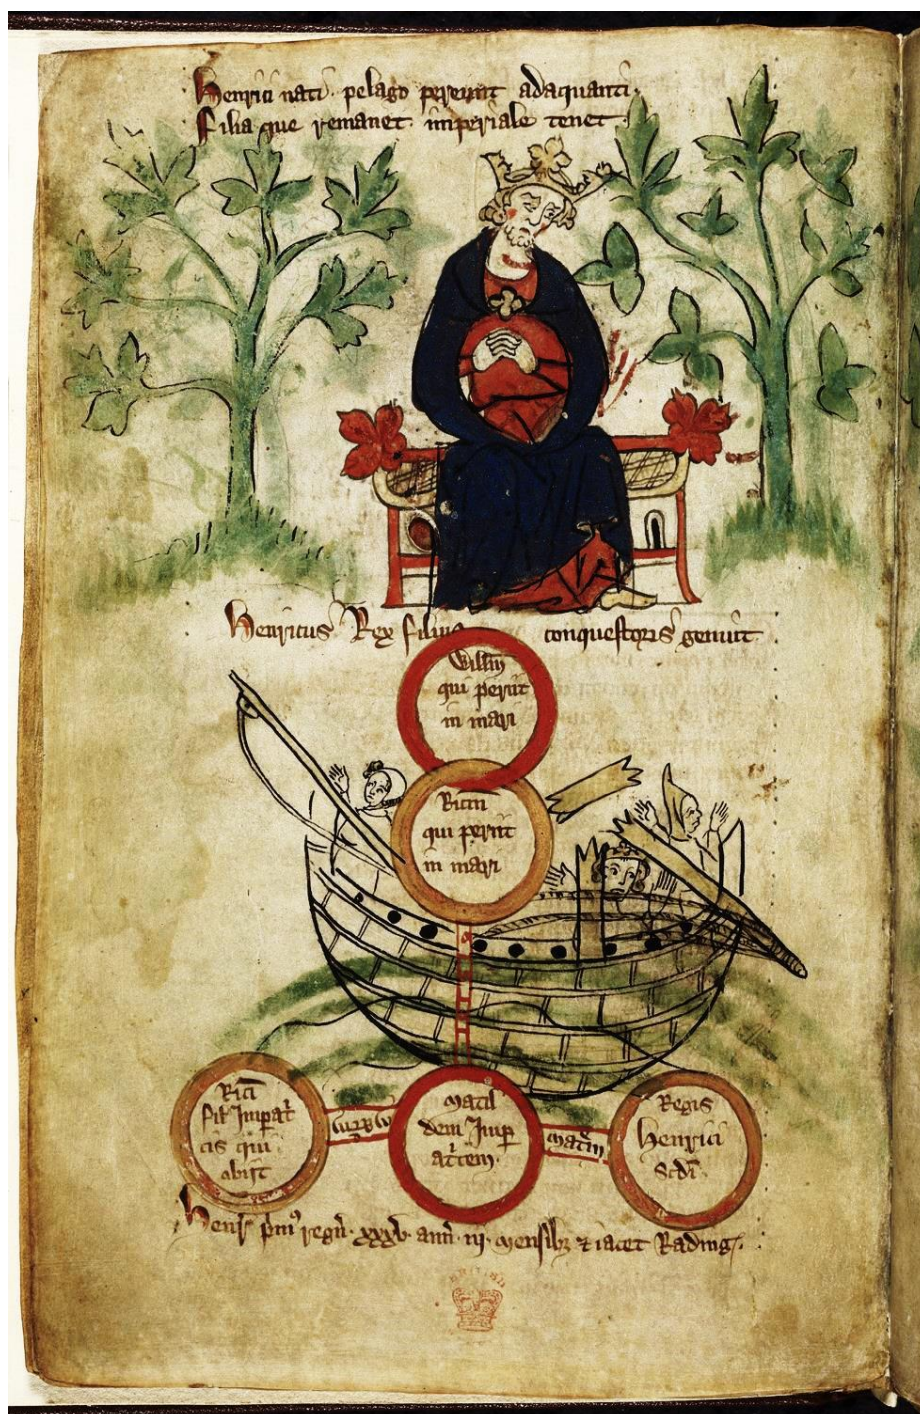 Henrici nati pelago pereunt adaquanti
Filia que remanet imperiale tenet
Henricus Rex filius conquestoris genuit
Willm
qui periit
in mari
Ricm
qui periit
in mari
Rici
fil' Impat
cis qui
obiit
Matil
dem Imp
atcem
matrem
Regis
Henrici
Scdi
Henr' pm' regn' xxxv ann' iij mensib' & iacet Rading